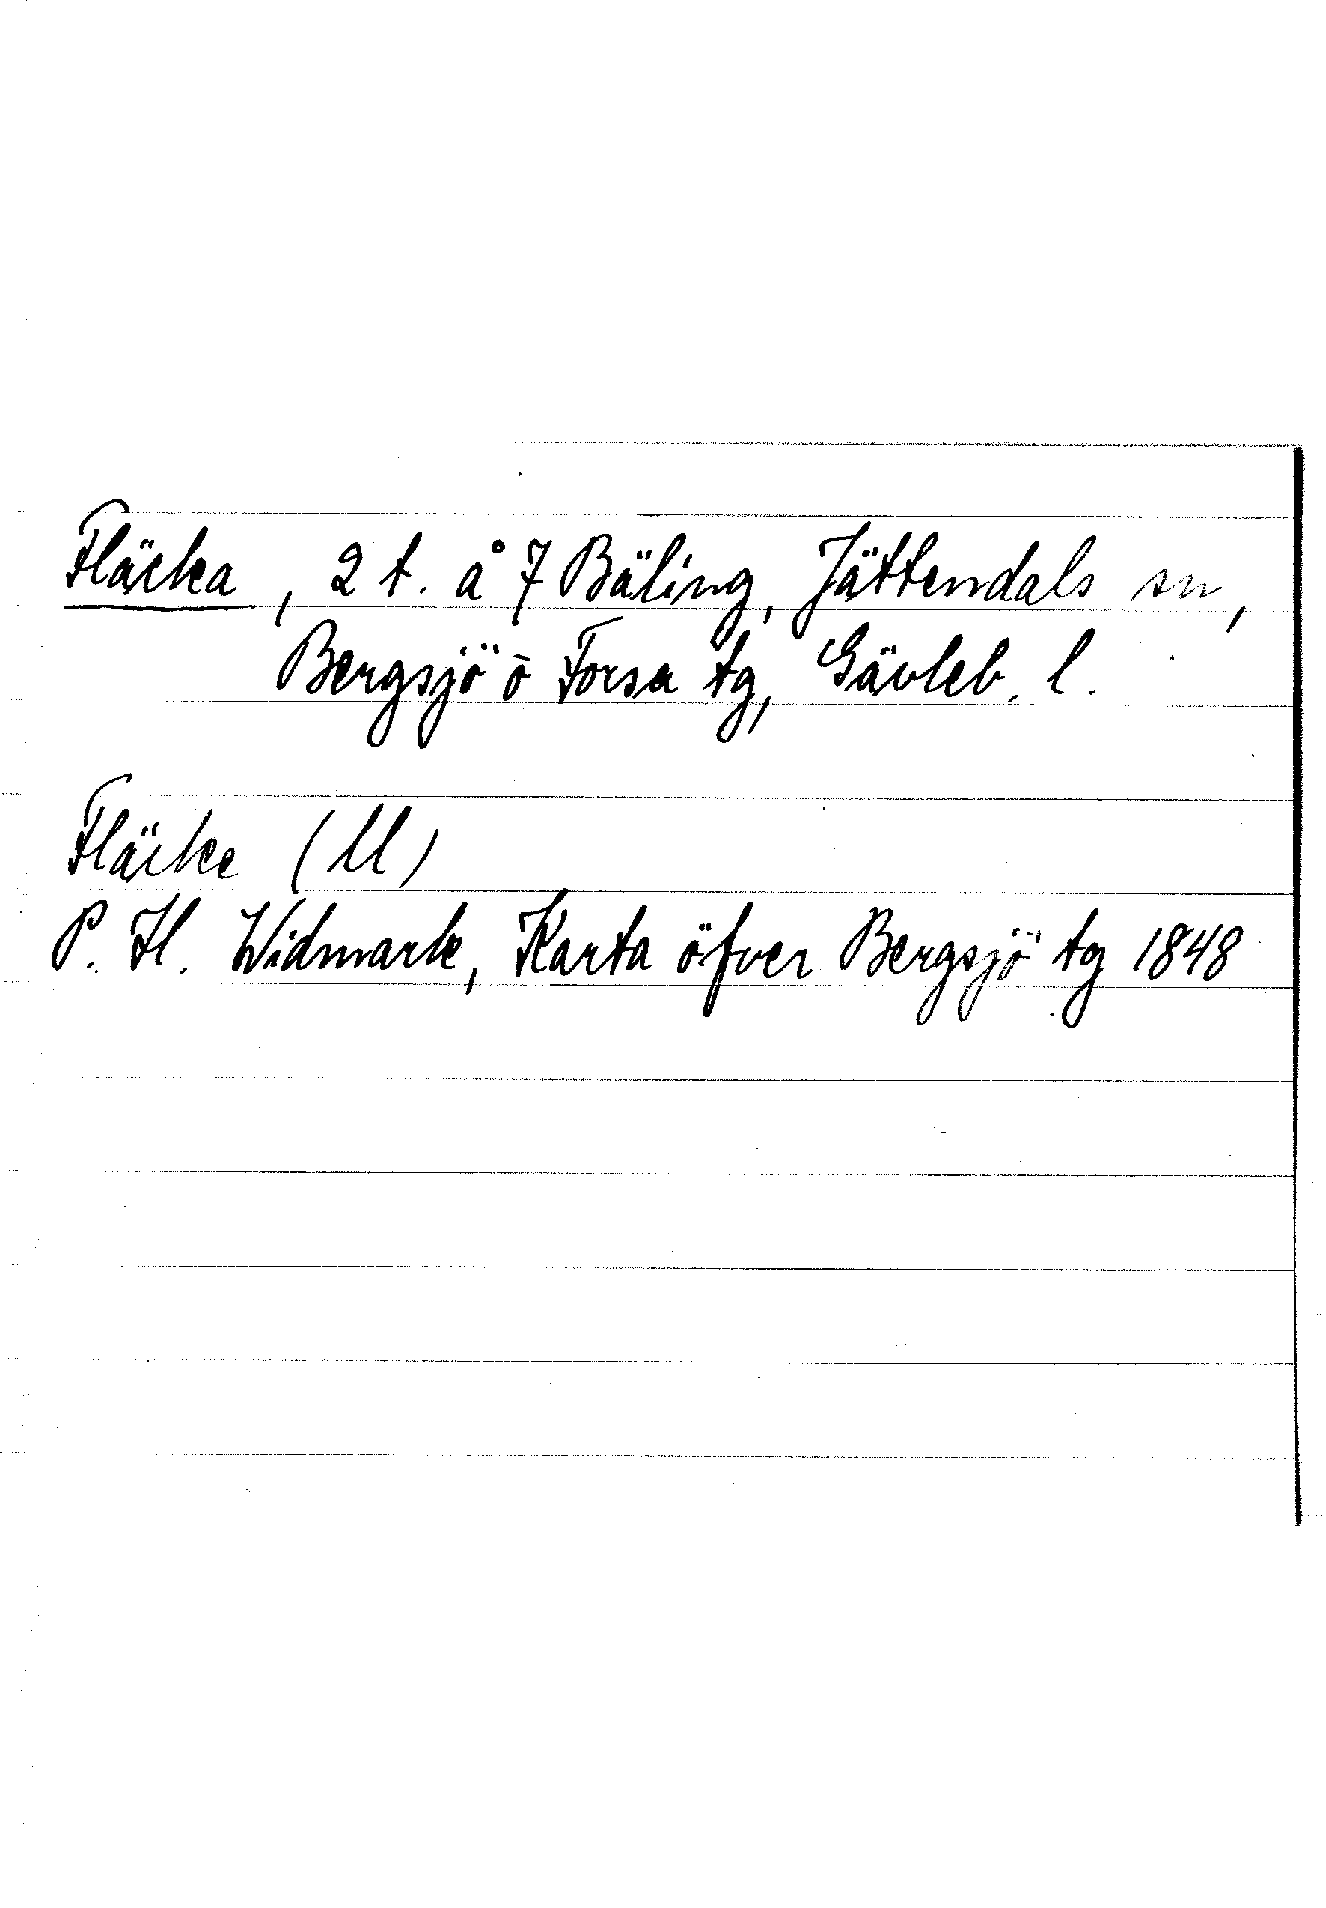 Fläcka, 2 t. å 7 Bäling, Jättendals sn,
Bergsjö o Forsa tg, Gävleb. l.
Fläcke (U)
P. H. Widmark, Karta öfver Bergsjö tg 1848